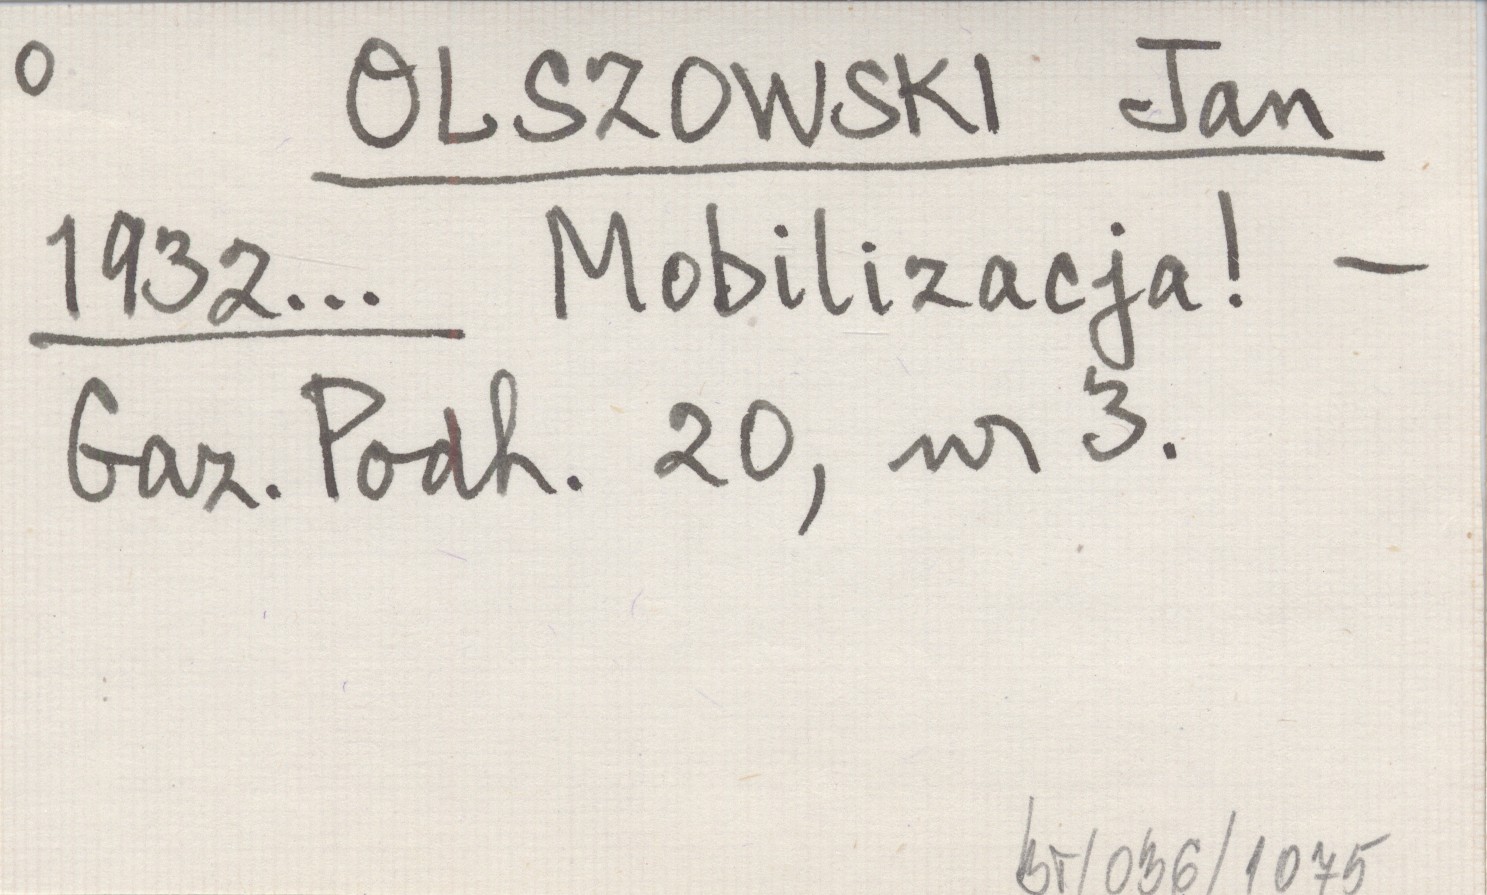 O OLSZOWSKI Jan
1932... Mobilizacja! —
Gaz. Podh. 20, nr 3.
/036/1075